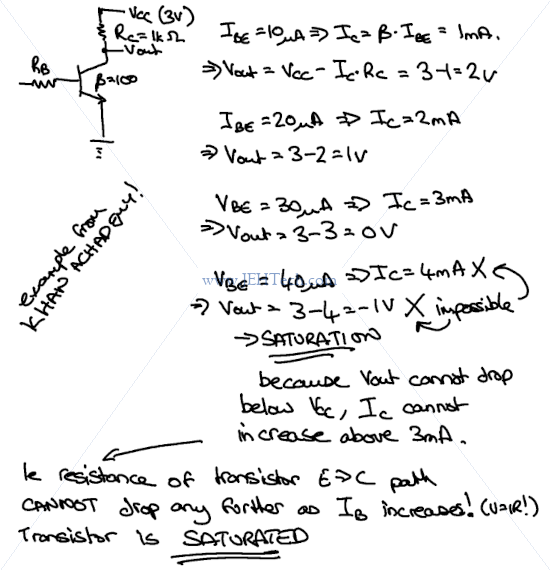 Vcc (3V)
Rc=1kΩ
Vout
RB
β=100
IBE=10μA => Ic = β·IBE = 1mA.
=> Vout = Vcc - Ic·Rc = 3-1=2V
IBE=20μA => Ic=2mA
=> Vout = 3-2=1V
VBE = 30μA => Ic=3mA
=> Vout = 3-3=0V
VBE = 40μA => Ic=4mA X
www.JEHTech.com
=> Vout = 3-4=-1V X impossible
-> SATURATION
example from
KHAN ACHADEMY!
because Vout cannot drop
below Vcc, Ic cannot
increase above 3mA.
Ie resistance of transistor E=>C path
CANNOT drop any further as IB increases! (V=IR!)
Transistor is SATURATED